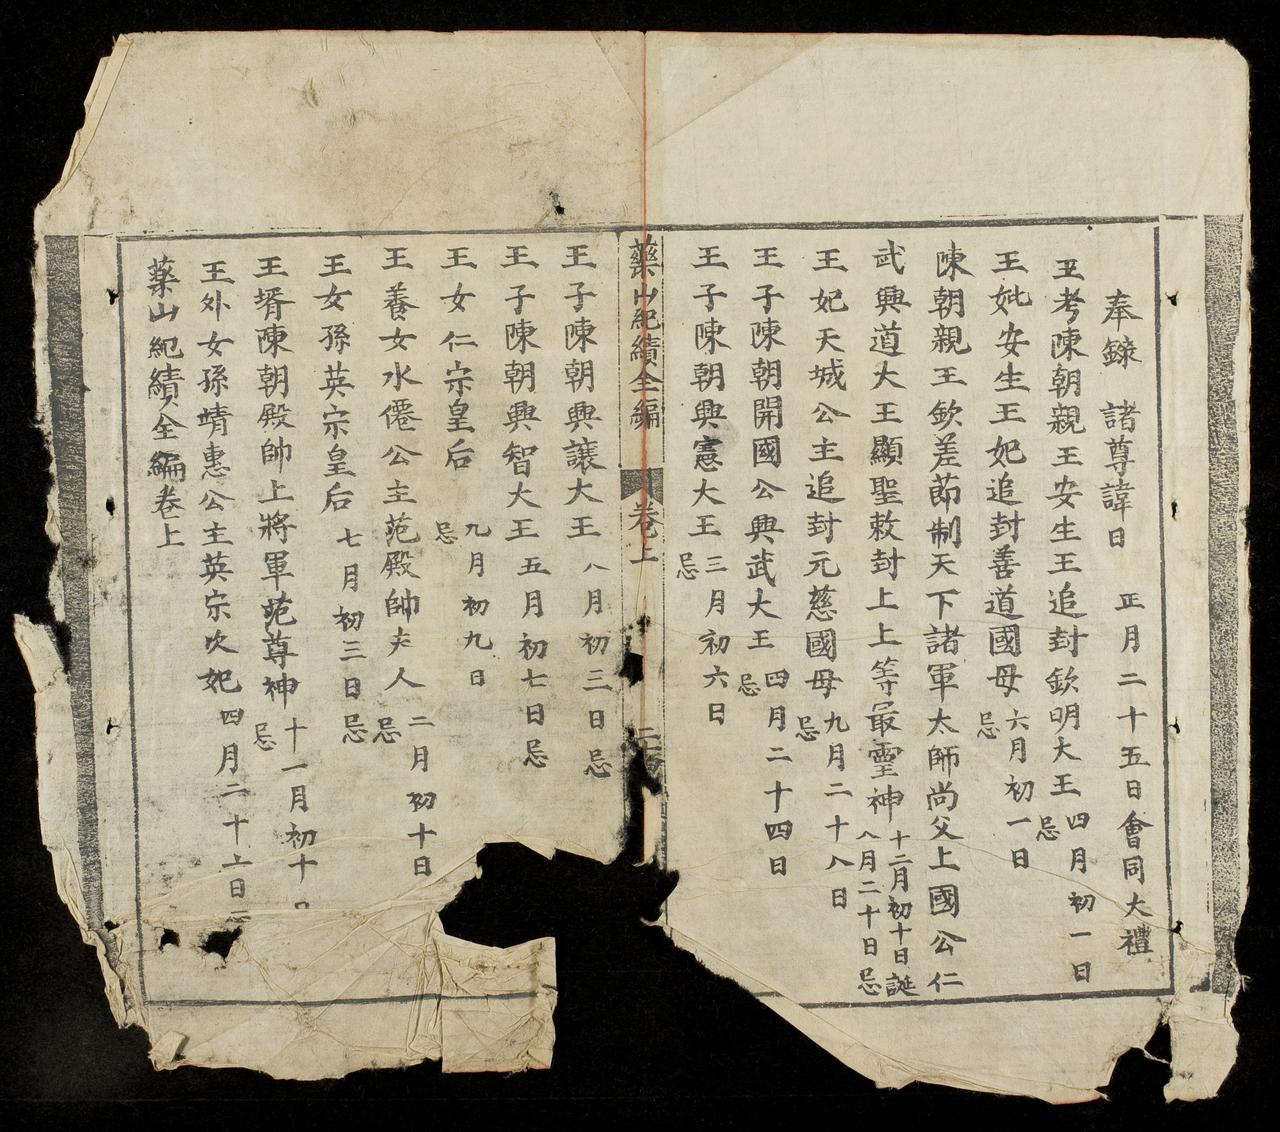 奉錄　諸尊諱日　正月二十五日會同大禮
王考陳朝親王安生王追封欽明大王四月初一日忌
王妣安生王妃追封善道國母六月初一日忌
陳朝親王欽差節制天下諸軍太師尚父上國公仁
武興道大王顯聖敕封上上等最靈神十二月初十日誕八月二十日忌
王妃天城公主追封元慈國母九月二十八日忌
王子陳朝開國公興武大王四月二十四日忌
王子陳朝興憲大王三月初六日忌
藥山紀績全編　卷上
王子陳朝興讓大王八月初三日忌
王子陳朝興智大王五月初七日忌
王女仁宗皇后九月初九日忌
王養女水僊公主范殿帥夫人二月初十日忌
王女孫英宗皇后七月初三日忌
王壻陳朝殿帥上將軍范尊神十一月初十日忌
王外女孫靖惠公主英宗次妃四月二十上日
藥山紀績全編卷上